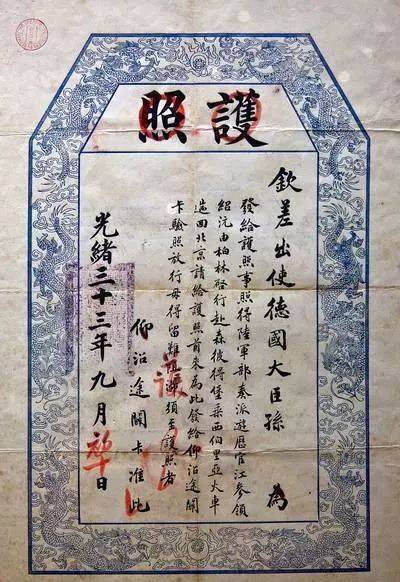 護照
欽差出使德國大臣孫 為
發給護照事照得陸軍部奏派遊歷官江參領
紹沅由柏林啓行赴森彼得堡乘西伯里亞大車
遄回北京請給護照前來為此發給仰沿途關
卡驗照放行毋得留難阻滯須至護照者
仰沿途關卡准此
光緒三十三年九月日